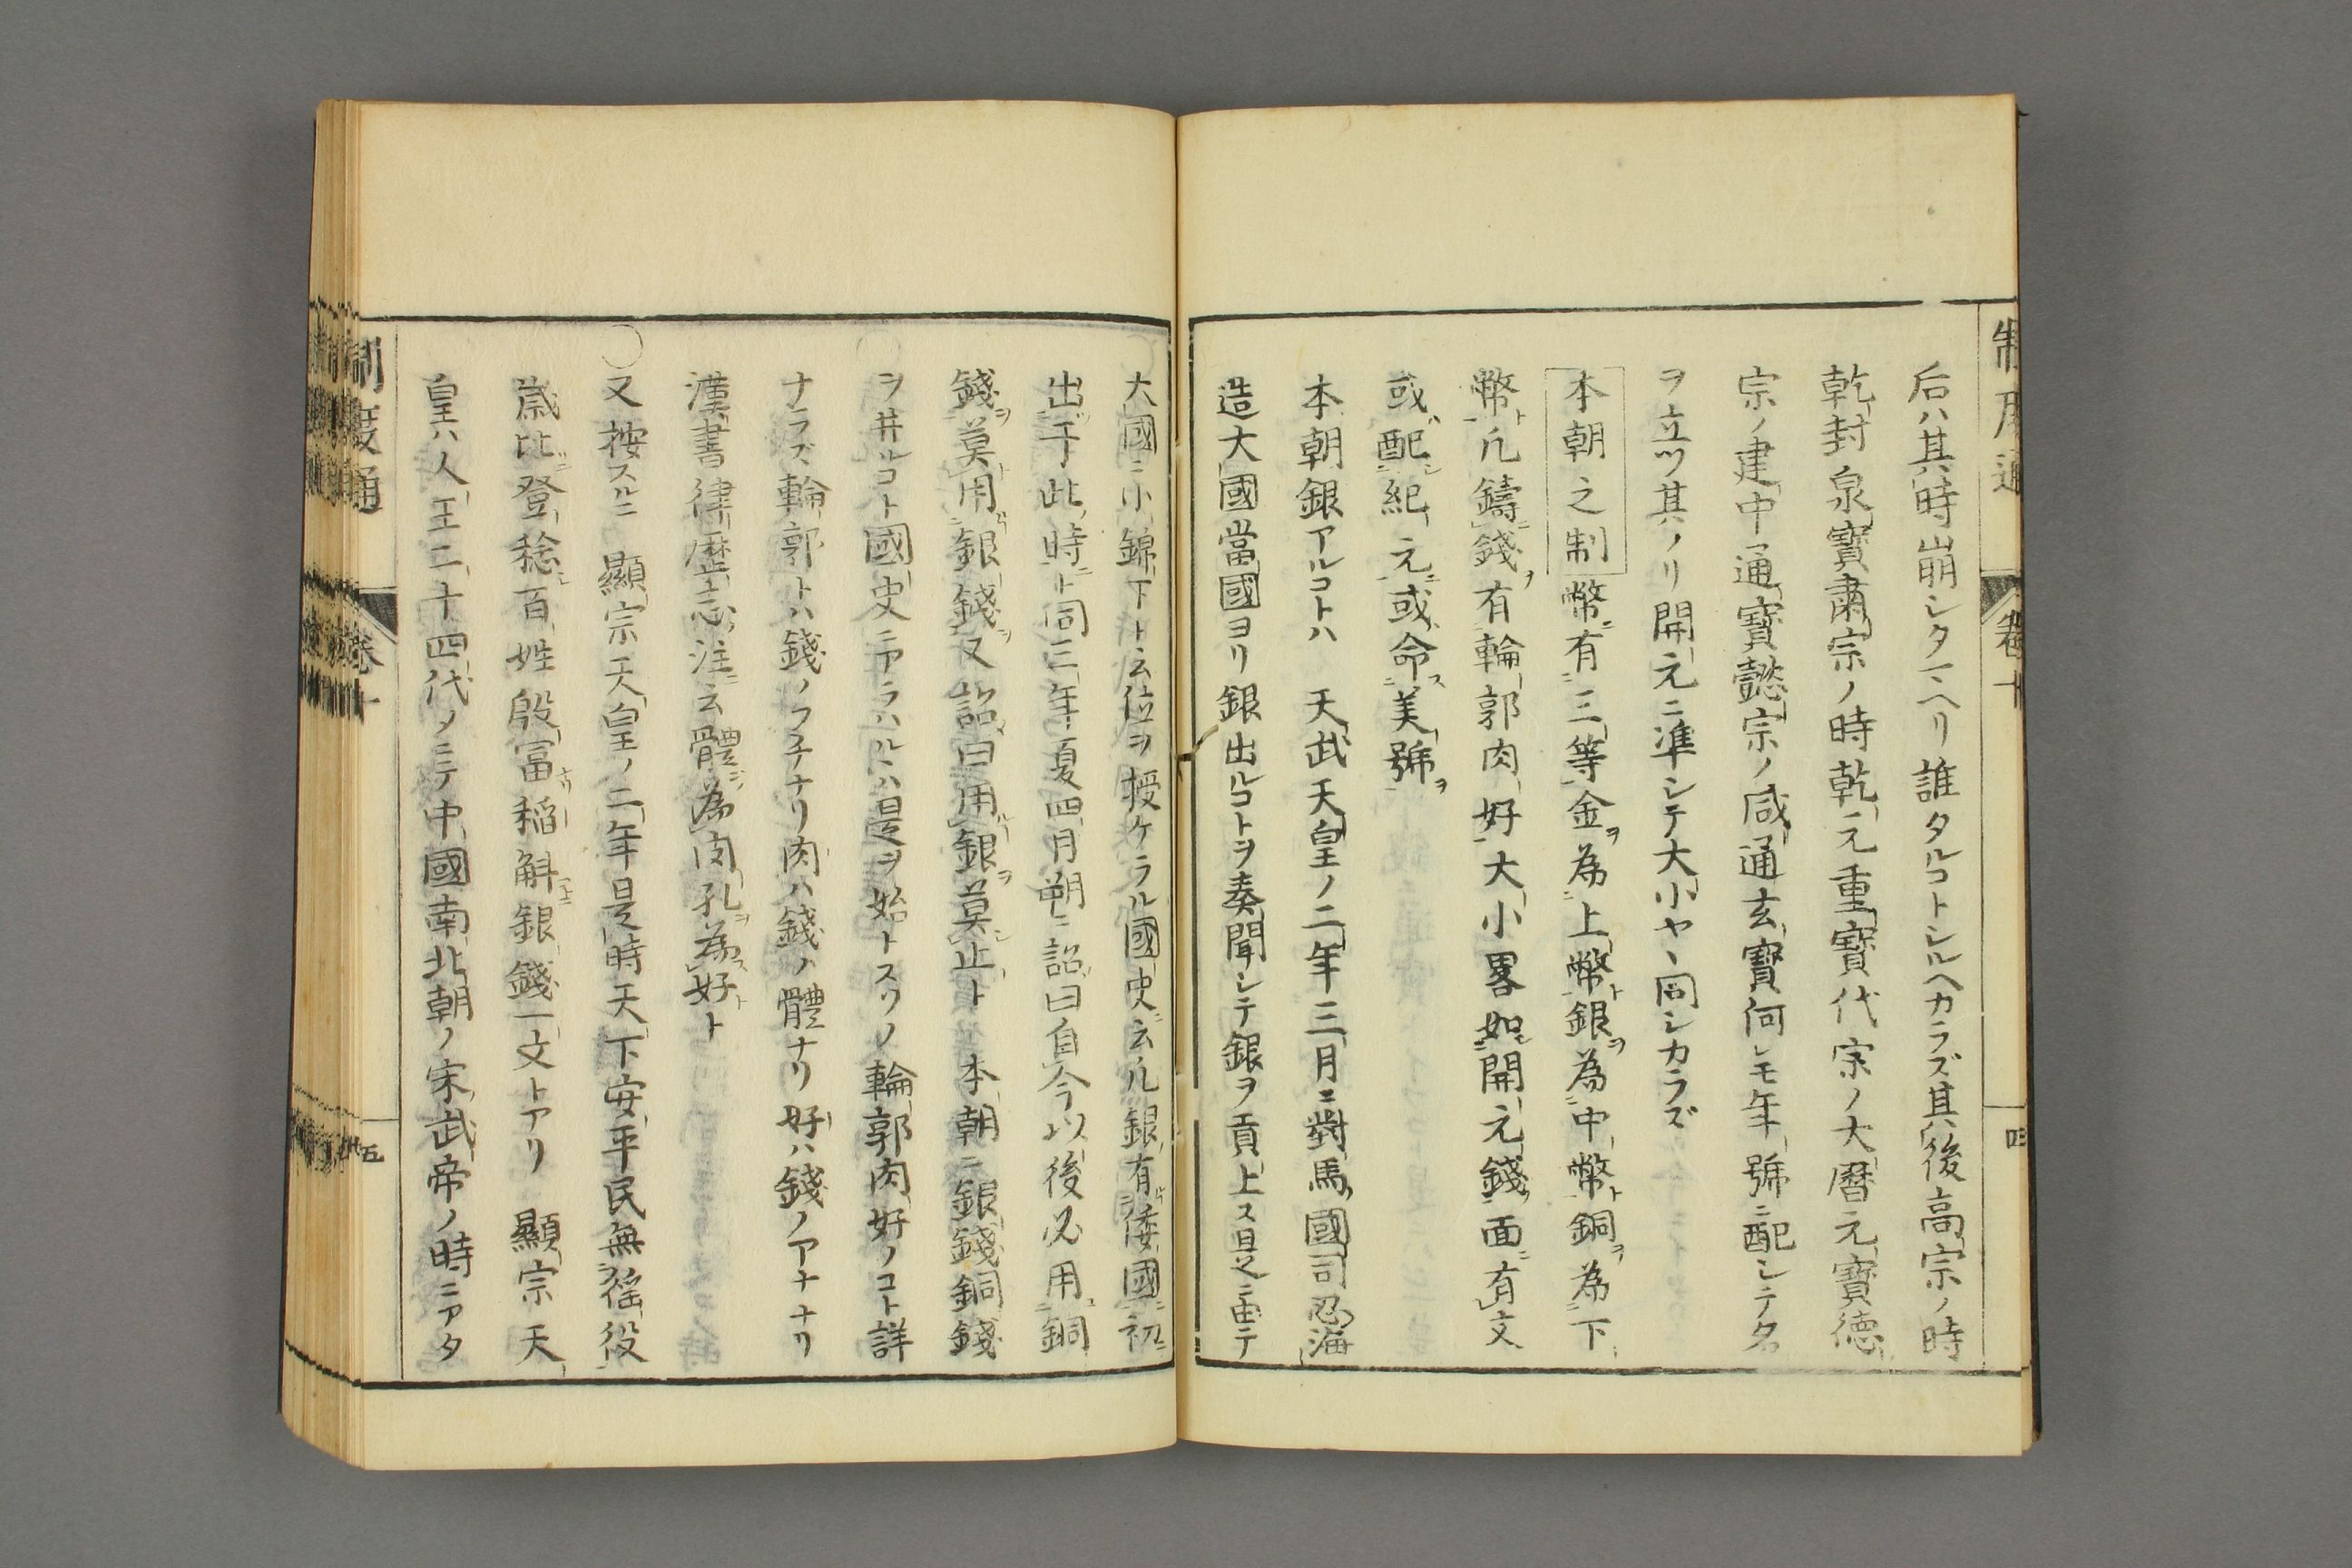 制度通
卷十
四
后ハ其時崩シタマヘリ誰タルコトシルヘカラズ其後高宗ノ時
乾封泉寶肅宗ノ時乾元重寶代宗ノ大曆元寶德
宗ノ建中通寶懿宗ノ咸通玄寶何レモ年號ニ配シテタ
ヲ立ツ其ノリ開元ニ準シテ大小ヤヽ同シカラズ
本朝之制幣有三等金ヲ為上幣ト銀ヲ為中幣ト銅ヲ為下
幣ト凡鑄錢ヲ有輪郭肉好大小畧如開元錢面ニ有文
或ハ配紀元ニ或命ス美號ヲ
本朝銀アルコトハ 天武天皇ノ二年三月ニ對馬國司忍海
造大國當國ヨリ銀出ルコトヲ奏聞シテ銀ヲ貢上ス是ニ由テ
大國ニ小錦下ト云位ヲ授ケラル國史ニ云凡銀有倭國ニ初
出于此時ト同三年夏四月朔ニ詔曰自今以後必用銅
錢ヲ莫用銀錢ヲ又詔曰用銀ヲ莫止ト 本朝ニ銀錢銅錢
ヲ井ルコト國史ニアラハルヽハ是ヲ始トスソノ輪郭肉好ノコト詳
ナラズ輪郭トハ錢ノフチナリ肉ハ錢ノ體ナリ好ハ錢ノアナナリ
漢書律歷志注ニ云體為肉孔ヲ為好ト
○又按スルニ 顯宗天皇ノ二年是時天下安平民無徭役
歲比登稔百姓殷冨稻斛銀錢一文トアリ 顯宗天
皇ハ人王二十四代ノミテ中國南北朝ノ宋武帝ノ時ニアタ
制度通
卷十
五